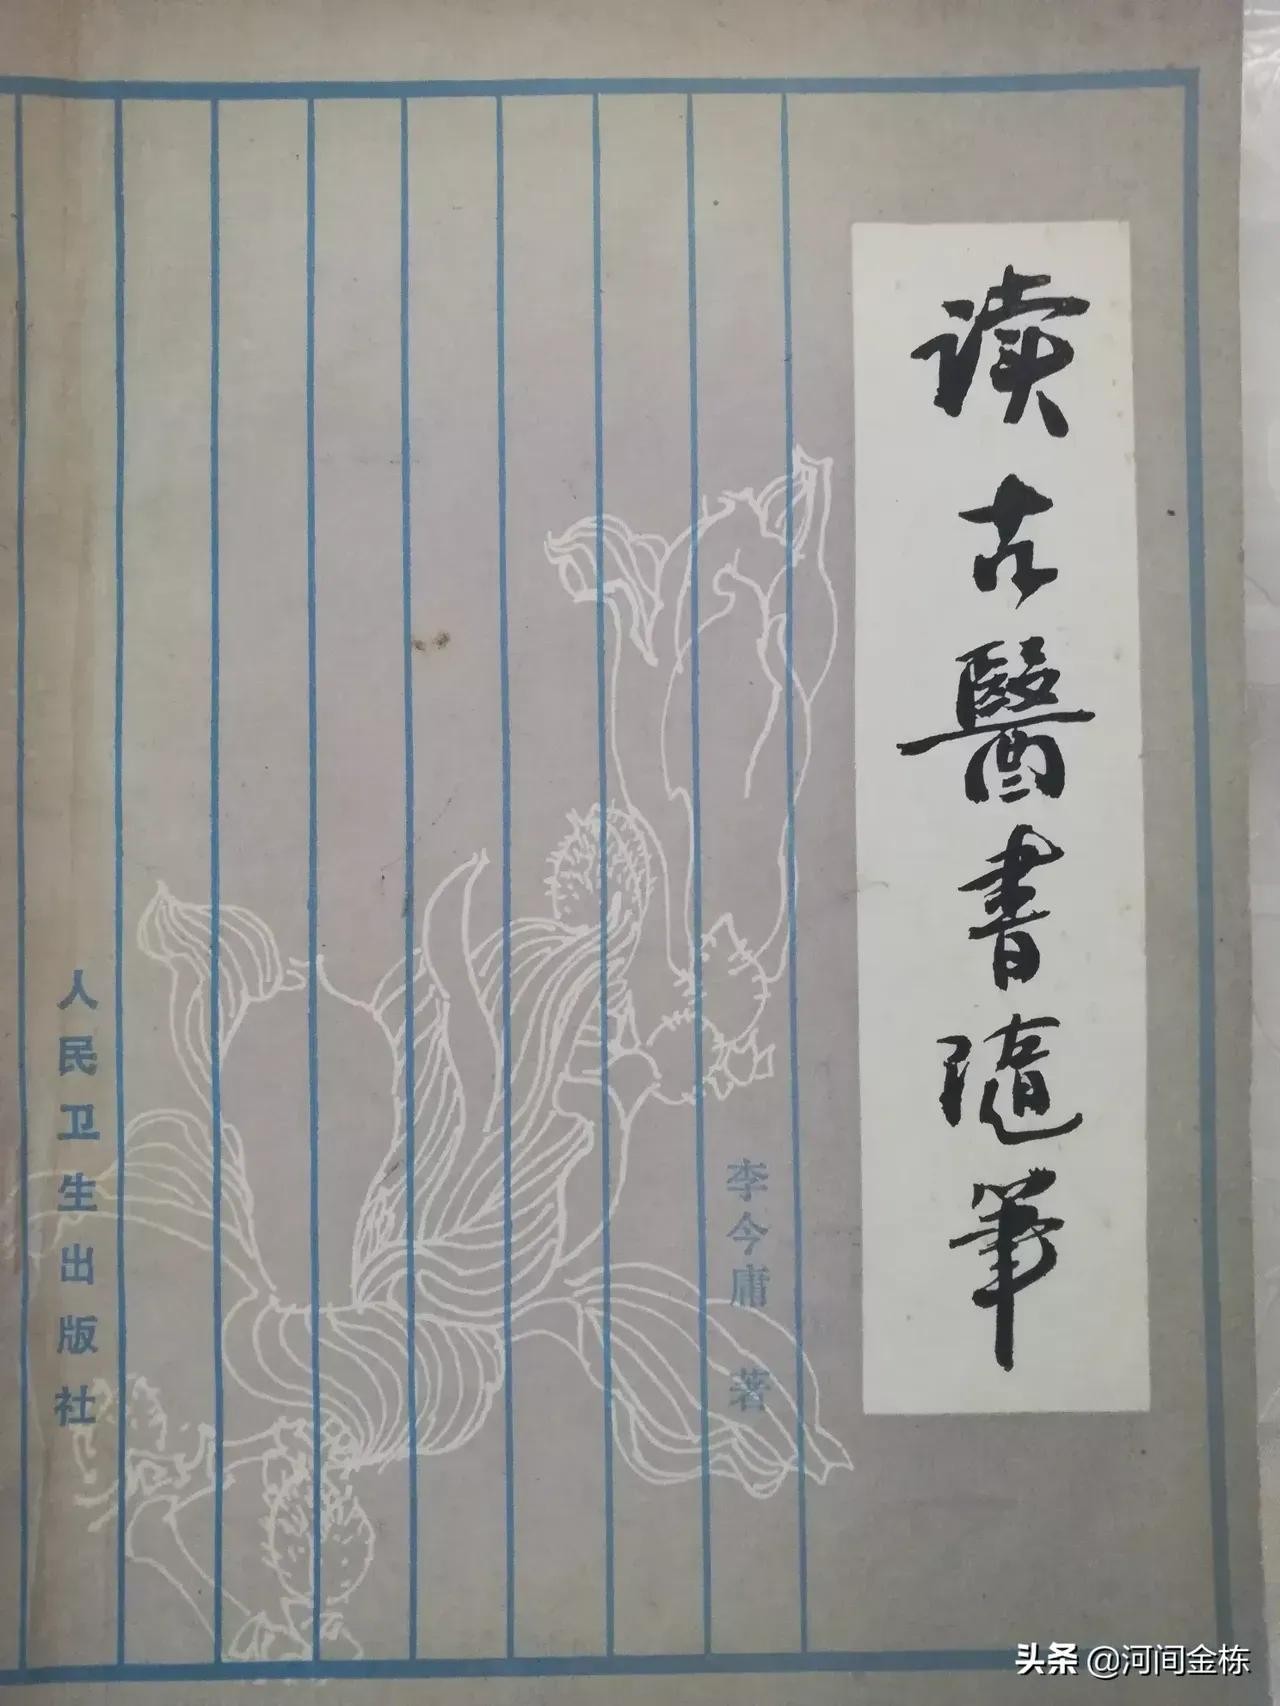 读古醫書随筆
李今庸 著
人民卫生出版社
头条 @河间金栋